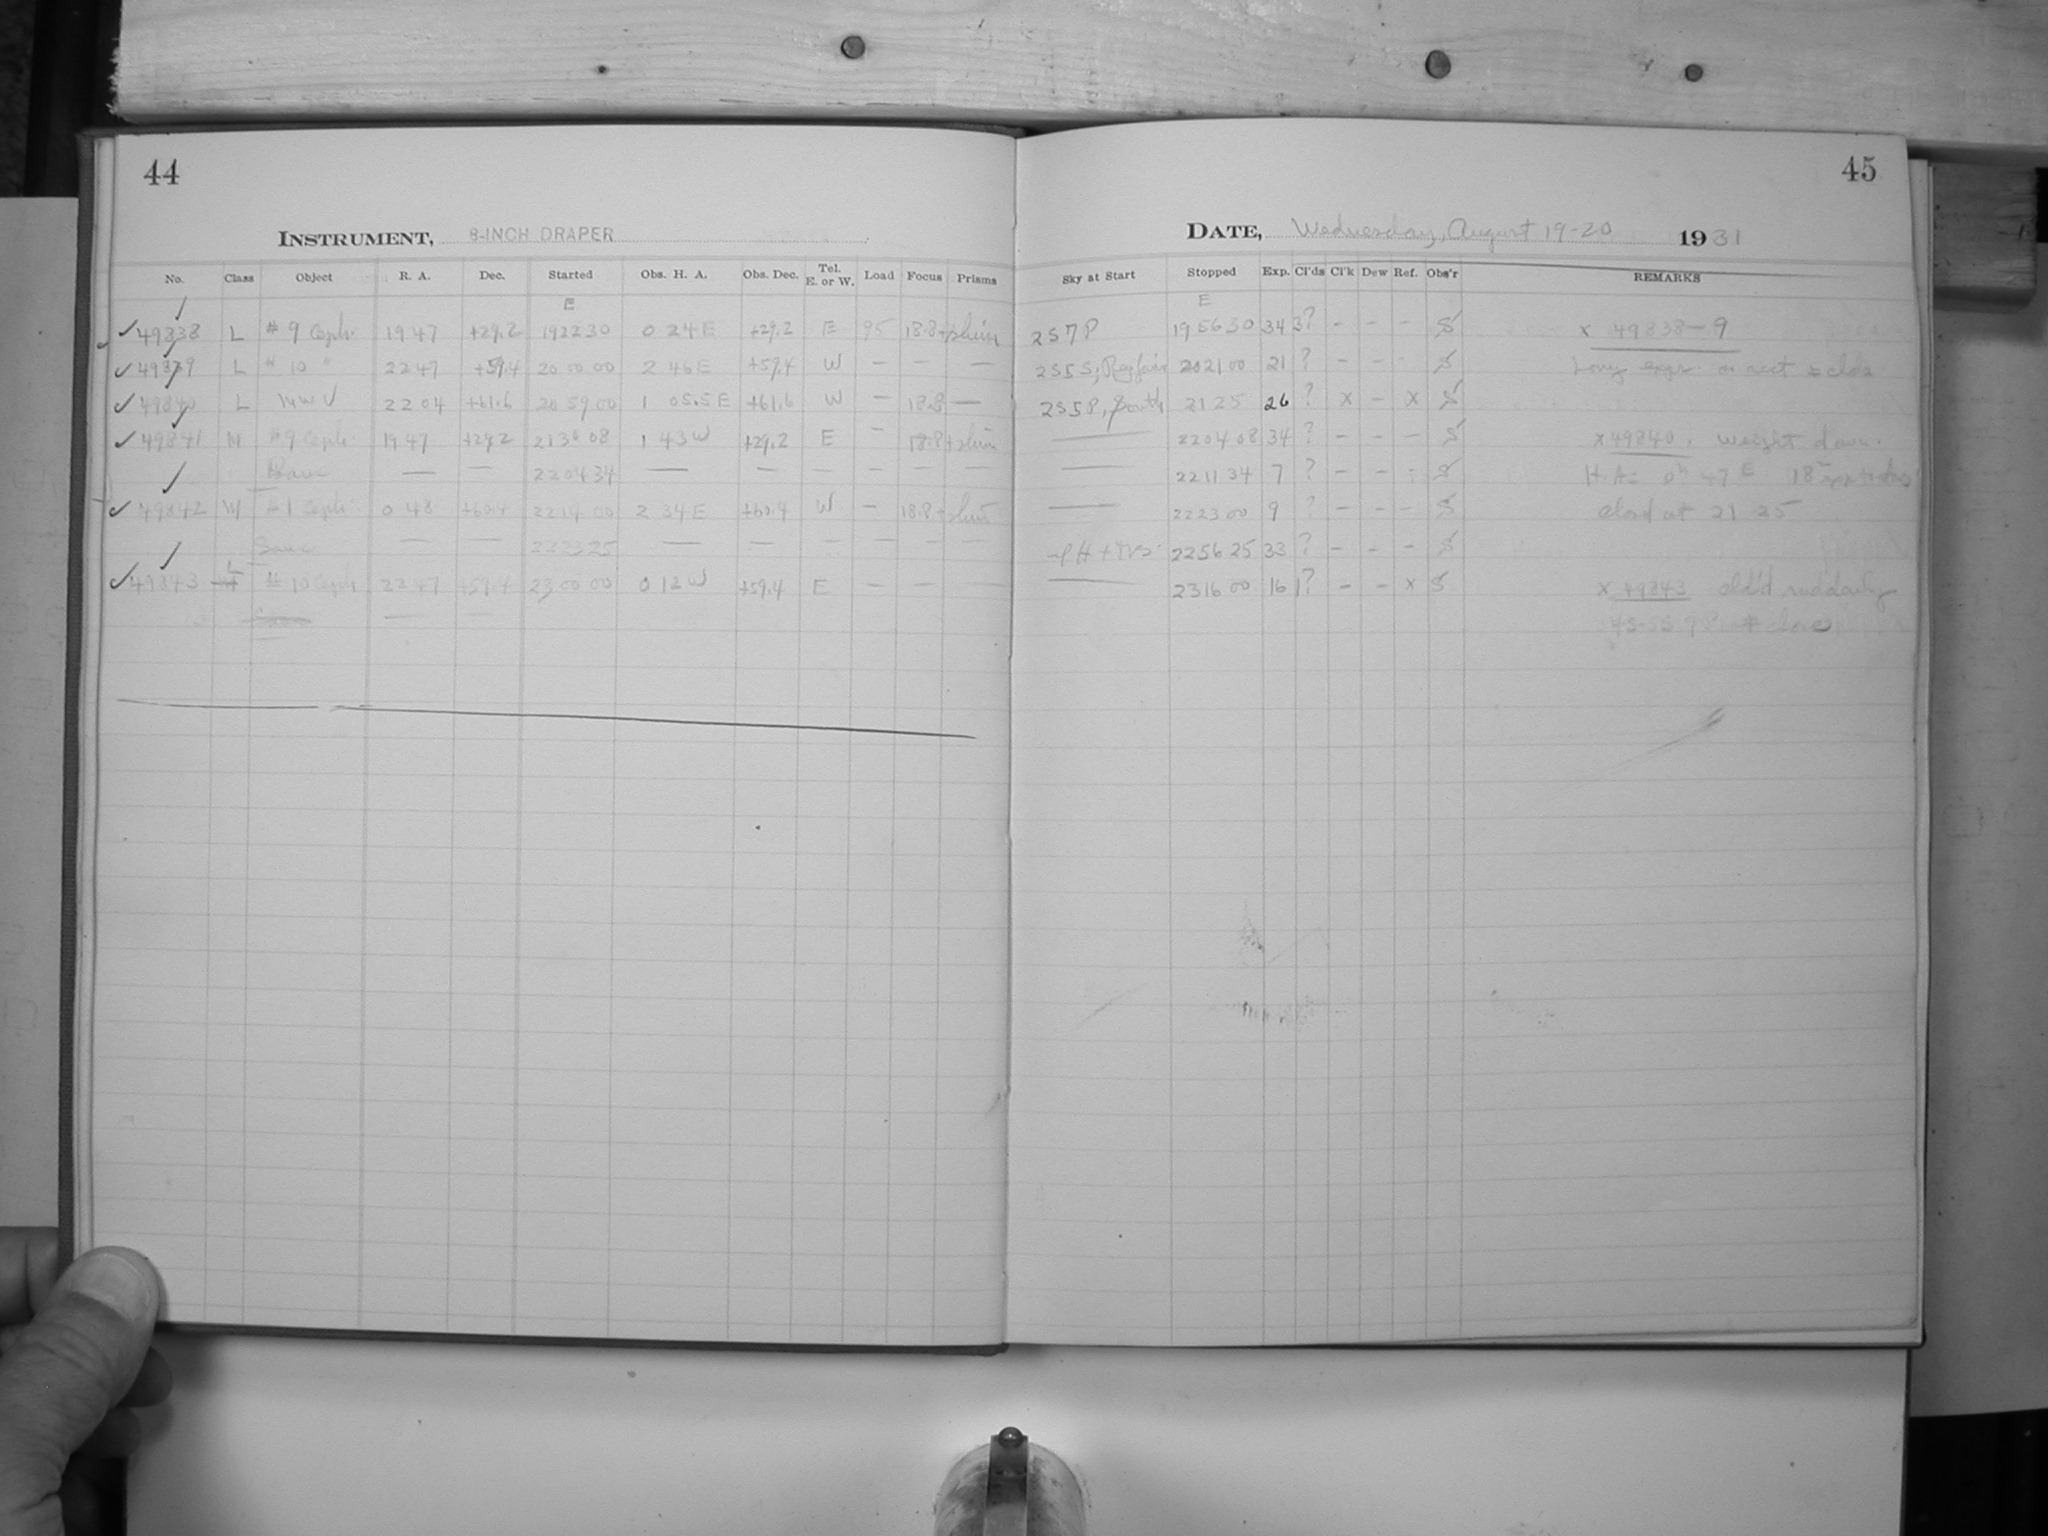 44
INSTRUMENT, 8-INCH DRAPER
No. Class Object R. A. Dec. Started Obs. H. A. Obs. Dec. Tel. E. or W. Load Focus Prisms
E
49838 L # 9 Ceph. 19 47 +29.2 19 22 30 0 24 E +29.2 E 95 18.8
49839 L " 10 " 22 47 +59.4 20 00 00 2 46 E +59.4 W — — —
49840 L MWV 22 04 +61.6 20 59 00 1 05.5 E +61.6 W — 18.8 —
49841 M # 9 Ceph. 19 47 +29.2 1 43 W +29.2 E — 18.8
— — 22 04 34 — — — — — —
49842 M # 1 Ceph. 0 48 +60.4 22 14 00 2 34 E +60.4 W — 18.8
Same — — 22 23 25 — — — — — —
49843 L # 10 Ceph. 22 47 +59.4 23 00 00 0 12 W +59.4 E — — —
Same — —
45
DATE, Wednesday, August 19-20 1931
Sky at Start Stopped Exp. Cl'ds Cl'k Dew Ref. Obs'r REMARKS
E
2S7P 19 56 30 34 3? - - - S x 49838-9
2S5S, 20 21 00 21 ? - - - S Long expr. on acct
2S5P, South 21 25 26 ? x - x S
— 22 04 08 34 ? - - - S x 49840. weight down.
— 22 11 34 7 ? - - - S H.A. = 0h 47 E 18m
— 22 23 00 9 ? - - - S clock at 21 25
22 56 25 33 ? - - - S
— 23 16 00 16 1? - - x S x 49843 cld'd suddenly